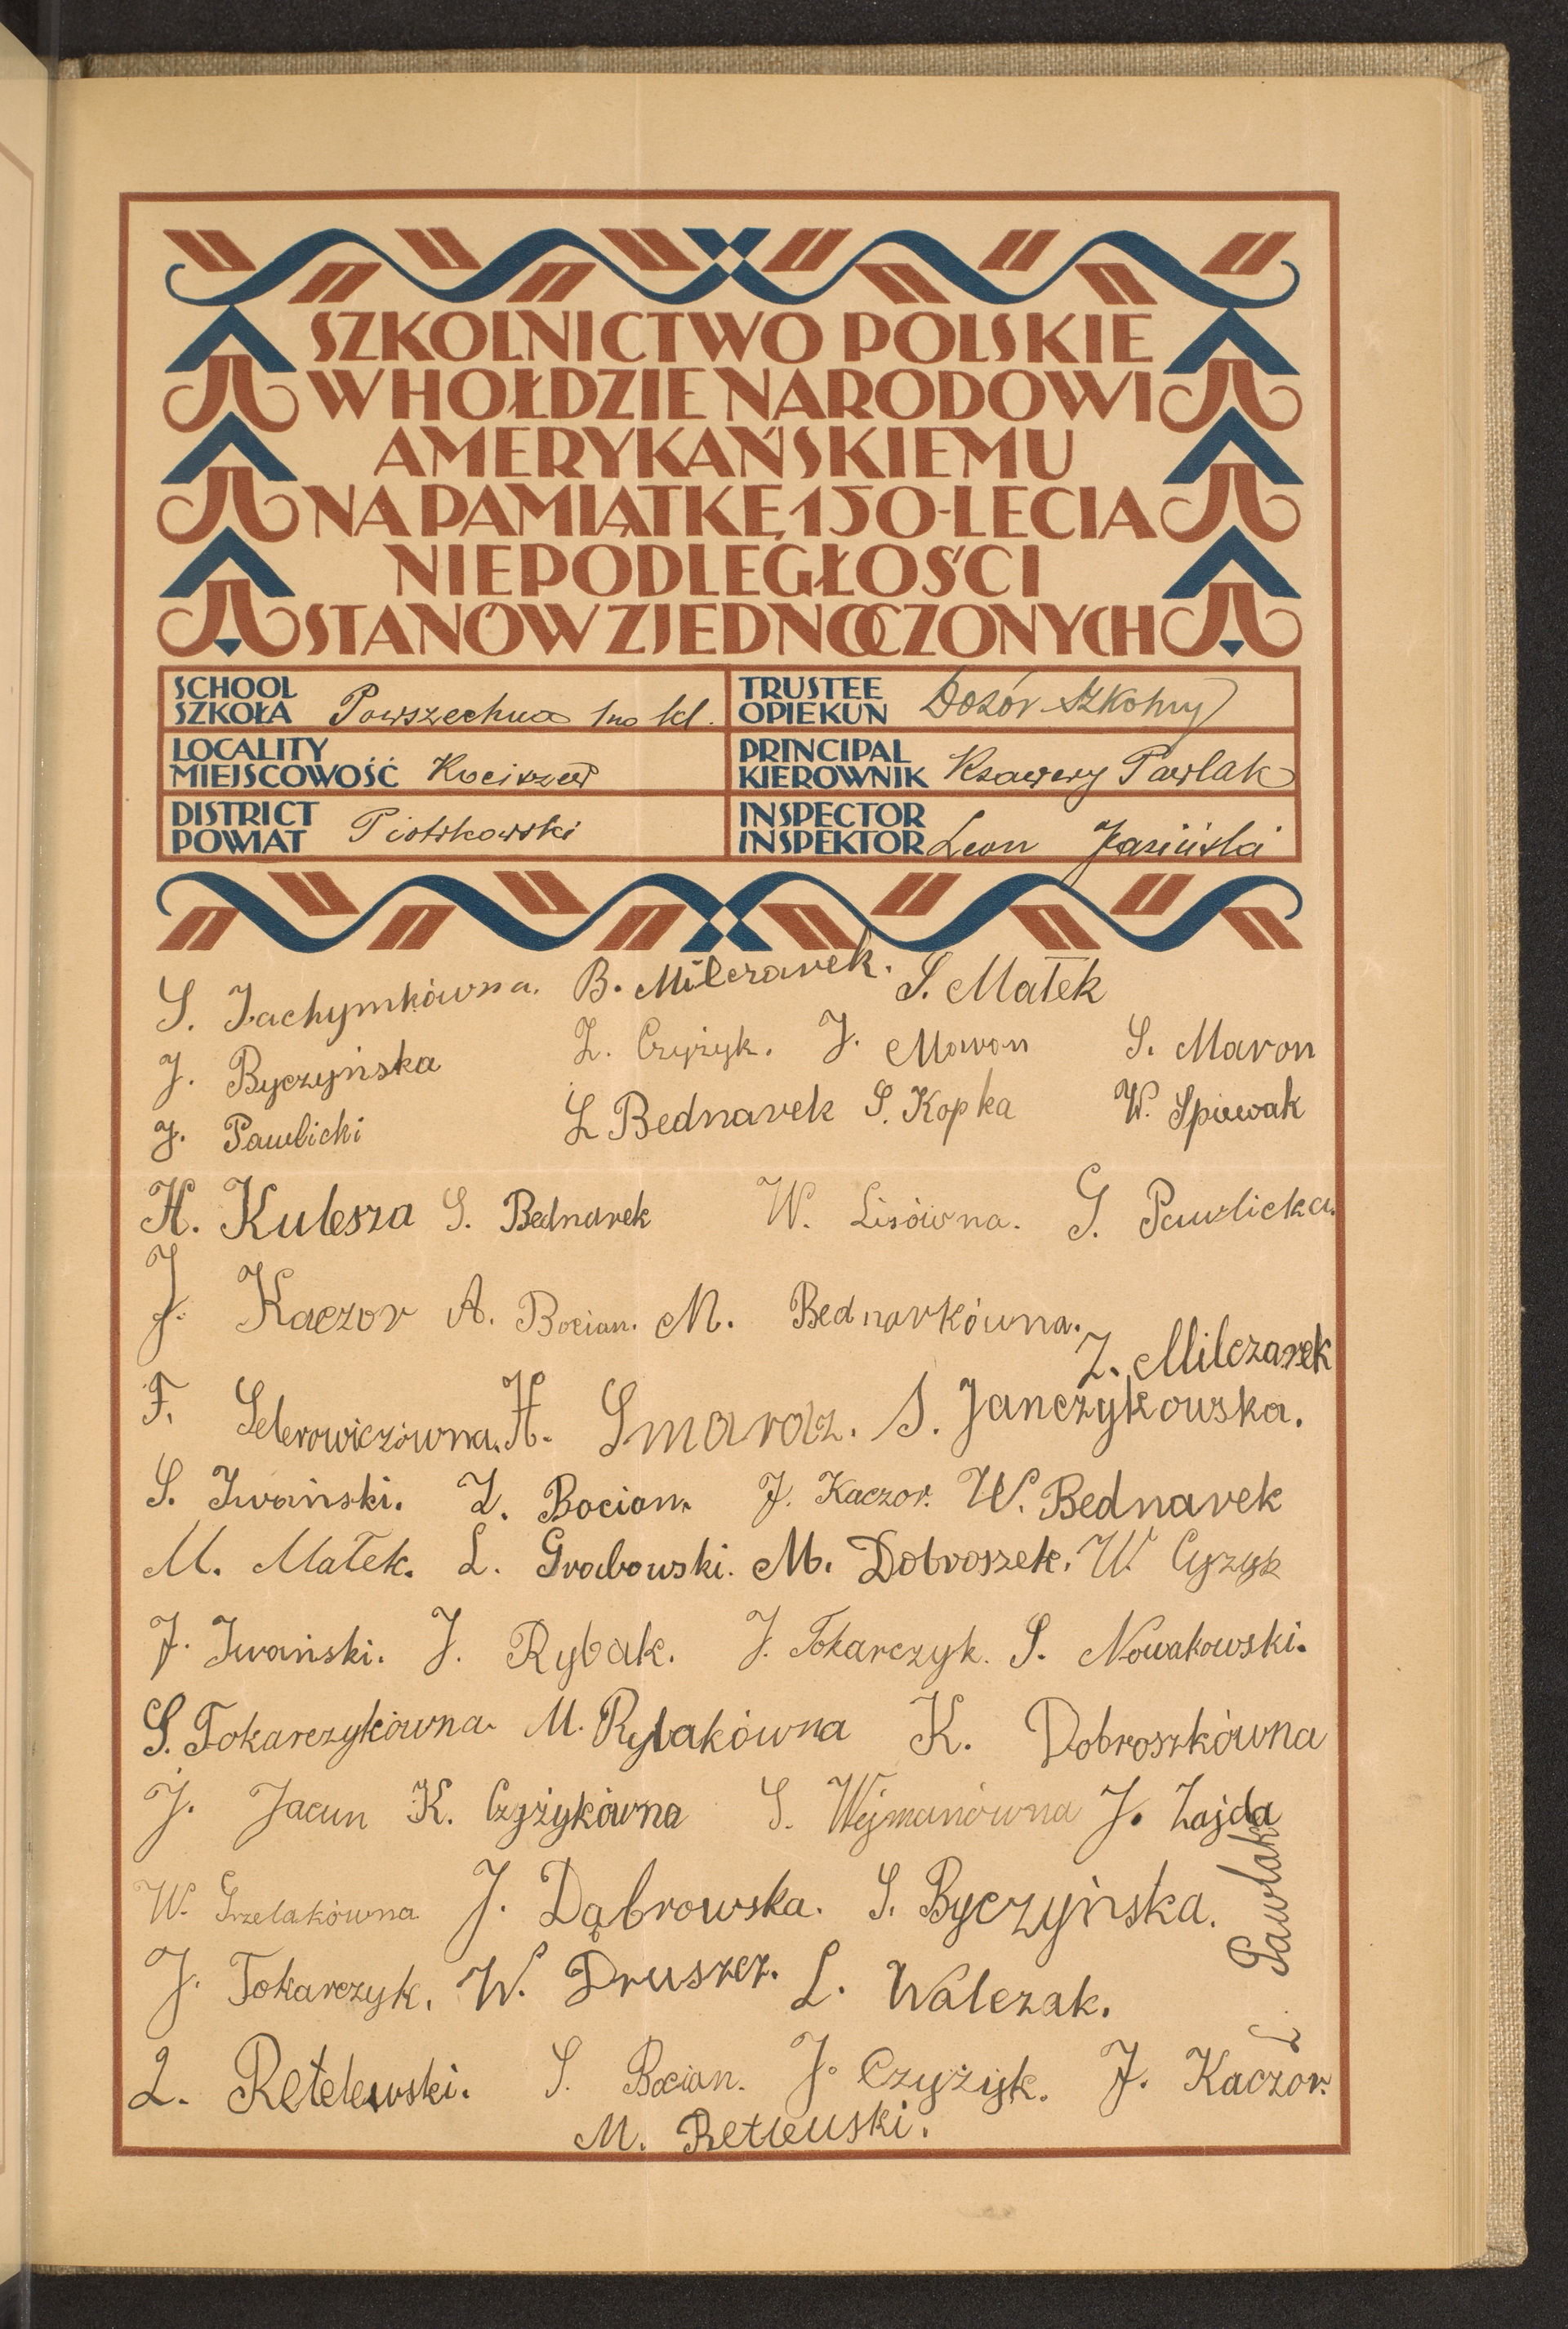 SZKOLNICTWO POLSKIE
W HOŁDZIE NARODOWI
AMERYKAŃSKIEMU
NA PAMIĄTKĘ 150-LECIA
NIEPODLEGŁOŚCI
STANÓW ZJEDNOCZONYCH
SCHOOL SZKOŁA Powszechna 1no kl.
TRUSTEE OPIEKUN Dozór Szkolny
LOCALITY MIEJSCOWOŚĆ Kociszew
PRINCIPAL KIEROWNIK Ksawery Pawlak
DISTRICT POWIAT Piotrkowski
INSPECTOR INSPEKTOR Leon Jasiński
S. Jachymkówna. B. Milczarek. S. Małek
J. Byczyńska Z. Czyżyk. J. Moron S. Maron
J. Pawlicki L Bednarek S. Kopka W. Spiewak
H. Kulesza S. Bednarek W. Lisówna. G. Pawlicka.
J. Kaczor A. Bocian. M. Bednarkówna.
Z. Milczarek
F. Seberowiczówna. H. Smaroż. S. Janczykowska.
S. Iwański. Z. Bocian. J. Kaczor. W. Bednarek
M. Małek. L. Grabowski. M. Dobroszek. W. Cyzyk
J. Iwański. J. Rybak. J. Tokarczyk. S. Nowakowski.
S. Tokarczykówna. M. Rybakówna K. Dobroszkówna
J. Jacun K. Czyżykówna S. Wejmanówna J. Zajda
W. Grzelakówna J. Dąbrowska. S. Byczyńska.
J. Tokarczyk. W. Druszcz. L. Walczak.
L. Pawlak
L. Retelewski. S. Bocian. J. Czyżyk. J. Kaczor.
M.